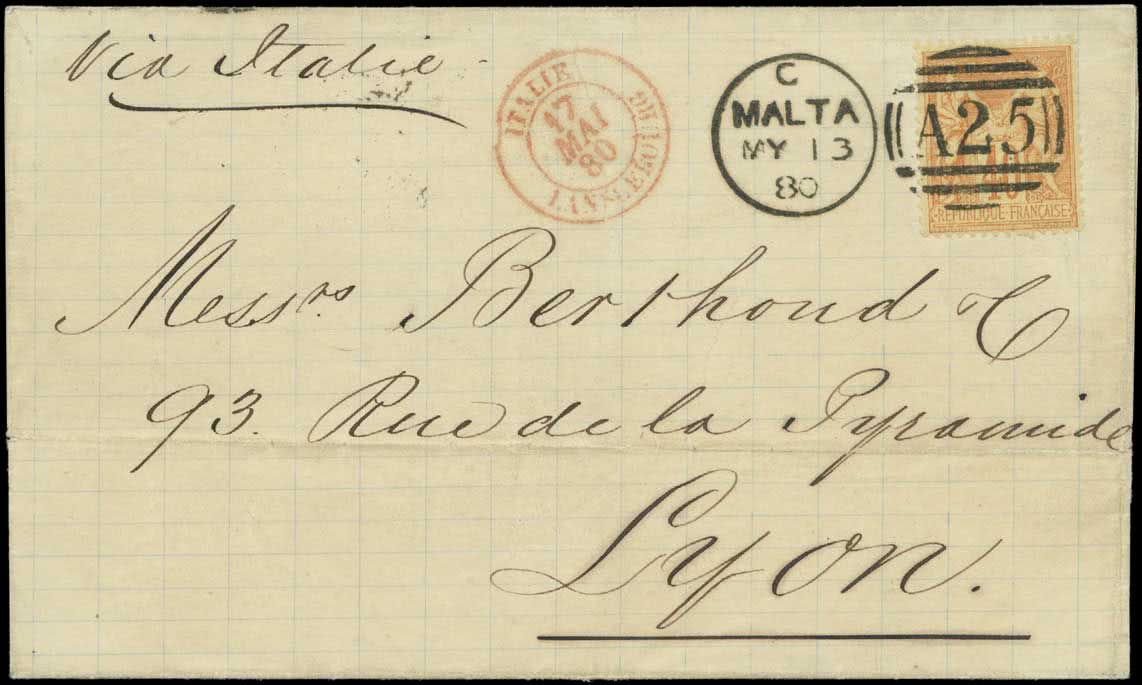 Via Italie
ITALIE
17
MAI
80
C
MALTA
MY 13
80
A25
40
REPUBLIQUE FRANÇAISE
Messrs Berthoud & C
93. Rue de la Pyramide
Lyon.